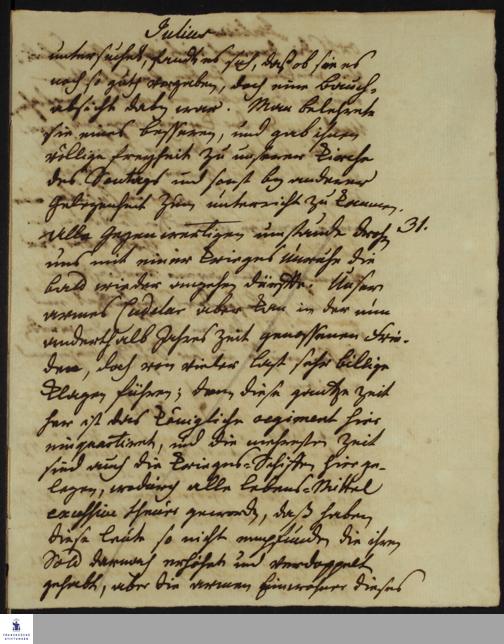 Julius
untersuchet, fandt es sich, daß ob sie es
noch so guth vorgeben, doch eine Bauch-
absicht dabey war. Man belehrete
sie eines besseren, und gab ihnen
völlige freyheit zu unserer Kirche
des Sontags und sonst bey anderer
gelegenheit zum unterricht zu kommen.
Alle gegenwertigen umstände drohen 31.
uns mit einer Krieges unruhe die
bald wieder angehen dürffte. Unser
armes Cudelur aber kan in der nun
anderthalb Jahres Zeit genossenen Frie-
den, doch von vieler last sehr billige
Klagen führen; denn diese gantze Zeit
her ist das Königliche regiment hier
einquartiret, und die mehresten Zeit
sind auch die Krieges-Schiffen hier ge-
legen, wodurch alle lebens-Mittel
excessive theuer geworden, daß haben
diese leute so nicht empfunden die ihren
Sold darnach erhöhet und verdoppelt
gehabt, aber die armen Einwohner dieses
FRANCKESCHE
STIFTUNGEN